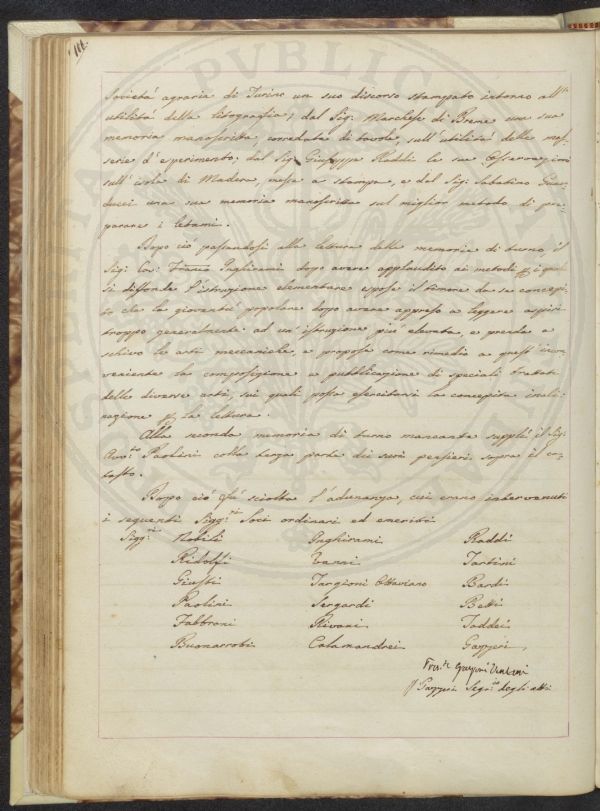 Società agraria di Torino un suo discorso stampato intorno all'
utilità della litografia; dal Sig. Marchese di Breme una sua
memoria manoscritta, corredata di tavole, sull'utilità delle mas=
serie d'esperimento; dal Sig. Giuseppe Raddi le sue Osservazioni
sull'isola di Madera, messe a stampa, e dal Sig. Sabatino Guar=
ducci una sua memoria manoscritta sul miglior metodo di pre=
parare i letami.
Dopo ciò passandosi alla lettura delle memorie di turno, il
Sig. Cav. Inghirami dopo avere applaudito ai metodi p i quali
si diffonde l'istruzione elementare espose il timore da se concepi=
to che la gioventù popolare dopo avere appreso a leggere aspiri
troppo generalmente ad un'istruzione più elevata, e prenda a
schivo le arti meccaniche, e propose come rimedio a quest'incon=
veniente la composizione e pubblicazione di speciali trattati
delle diverse arti, sui quali possa esercitarsi la concepita incli=
nazione p la lettura.
Alla seconda memoria di turno mancante supplì il Sig.
Avv.to Paolini colla terza parte dei suoi pensieri sopra il ca=
tasto.
Dopo ciò fu sciolta l'adunanza, cui erano intervenuti
i seguenti Sigg.ri Soci ordinari ed emeriti
Sigg.ri Nobili Inghirami Raddi
Ridolfi Vanni Tartini
Giusti Targioni Ottaviano Bardi
Paolini Sergardi Betti
Fabbroni Rivani Taddei
Buonarroti Calamandrei Gazzeri
Gazzeri Segr.io degli atti